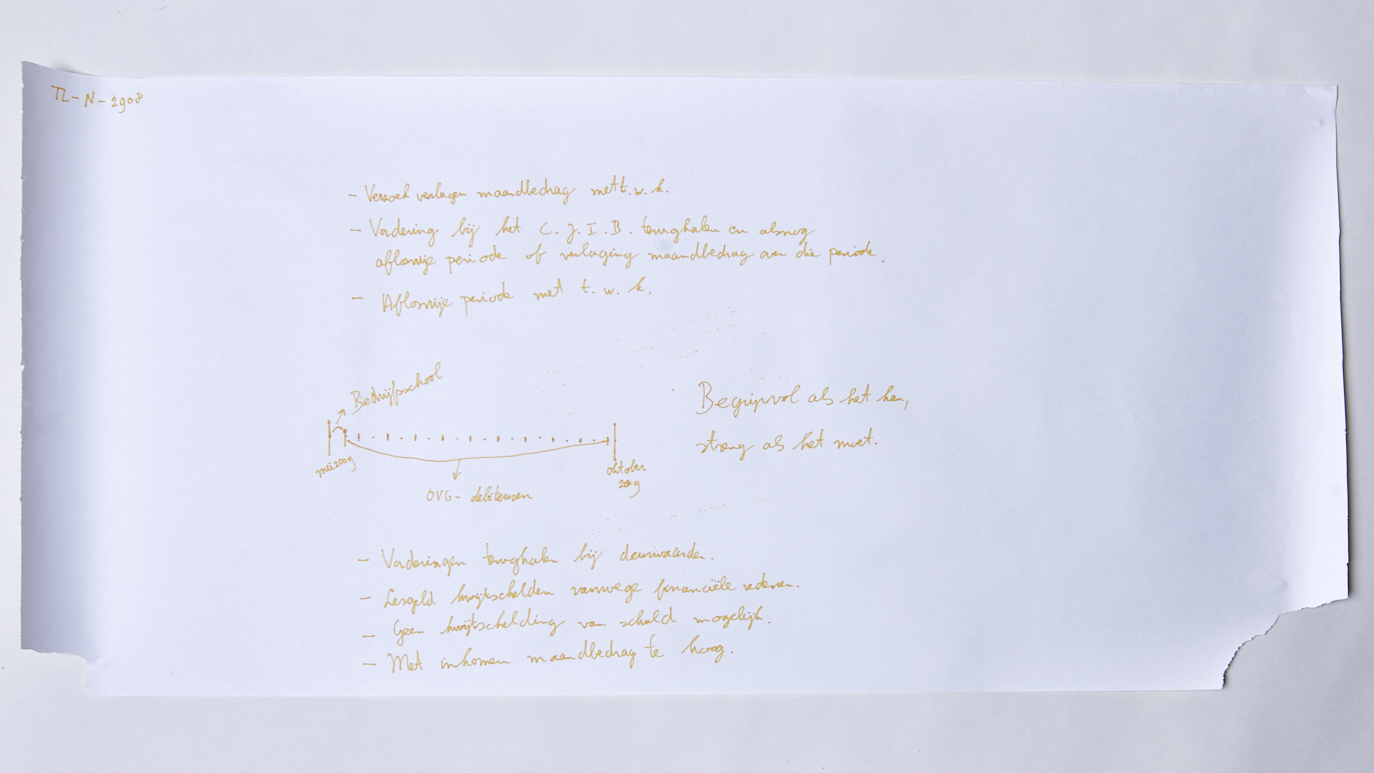 TL-N-2908
- Verzoek verlagen maandbedrag met t.w.k.
- Vordering bij het C.J.I.B. terughalen en alsnog
aflosvrije periode of verlaging maandbedrag over die periode.
- Aflosvrije periode met t.w.k.
Bedrijfsschool
mei 2009
oktober
2009
OVG-debiteuren
Begripvol als het kan,
streng als het moet.
- Vorderingen terughalen bij deurwaarder.
- Lesgeld kwijtschelden vanwege financiële redenen.
- Geen kwijtschelding van schuld mogelijk.
- Met inkomen maandbedrag te hoog.